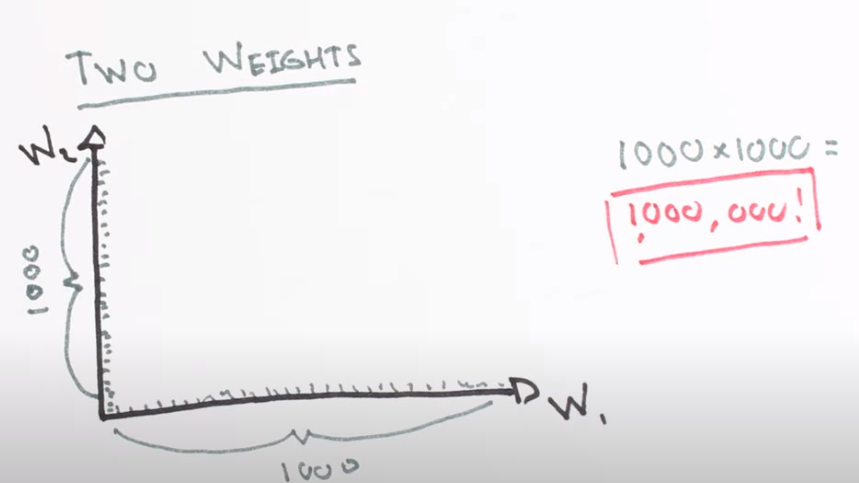 TWO WEIGHTS
W₂
1000×1000=
1,000,000!
1000
W₁
1000